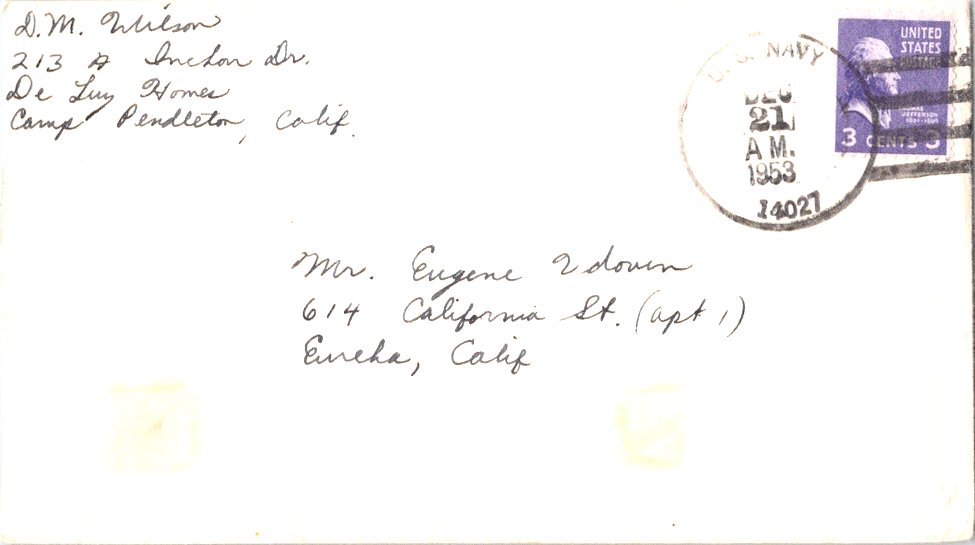 D.M. Wilson
213 A Inchon Dr.
De Luz Homes
Camp Pendleton, Calif.
U.S. NAVY
DEC
21
A M.
1953
14027
UNITED
STATES
POSTAGE
THOMAS
JEFFERSON
3 CENTS 3
Mr. Eugene Vdovin
614 California St. (apt 1)
Eureka, Calif